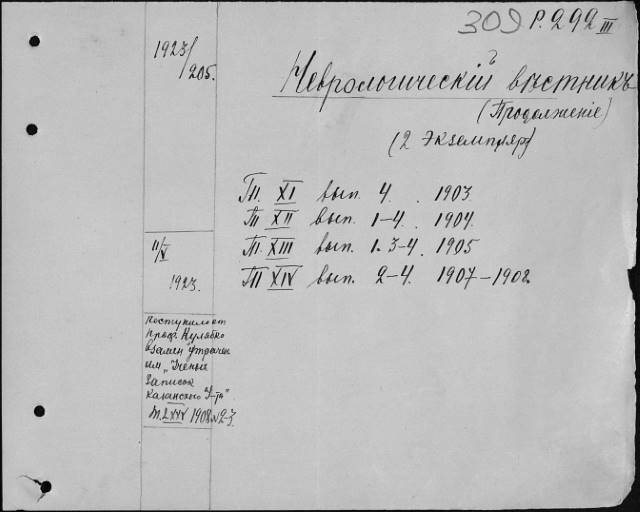 309 Р. 292 III
1923/205.
Неврологическій вѣстникъ
(Продолженіе)
(2 экземпляр)
Т. XI вып. 4. 1903
Т. XII вып. 1-4. 1904.
Т. XIII вып. 1. 3-4. 1905
Т. XIV вып. 2-4. 1907-1908.
11/V
1923.
Поступило от
проф. Кулябко
взамен утрачен
им „Ученых
Записок
Казанского У-та"
т. LXXV 1908 №2-3